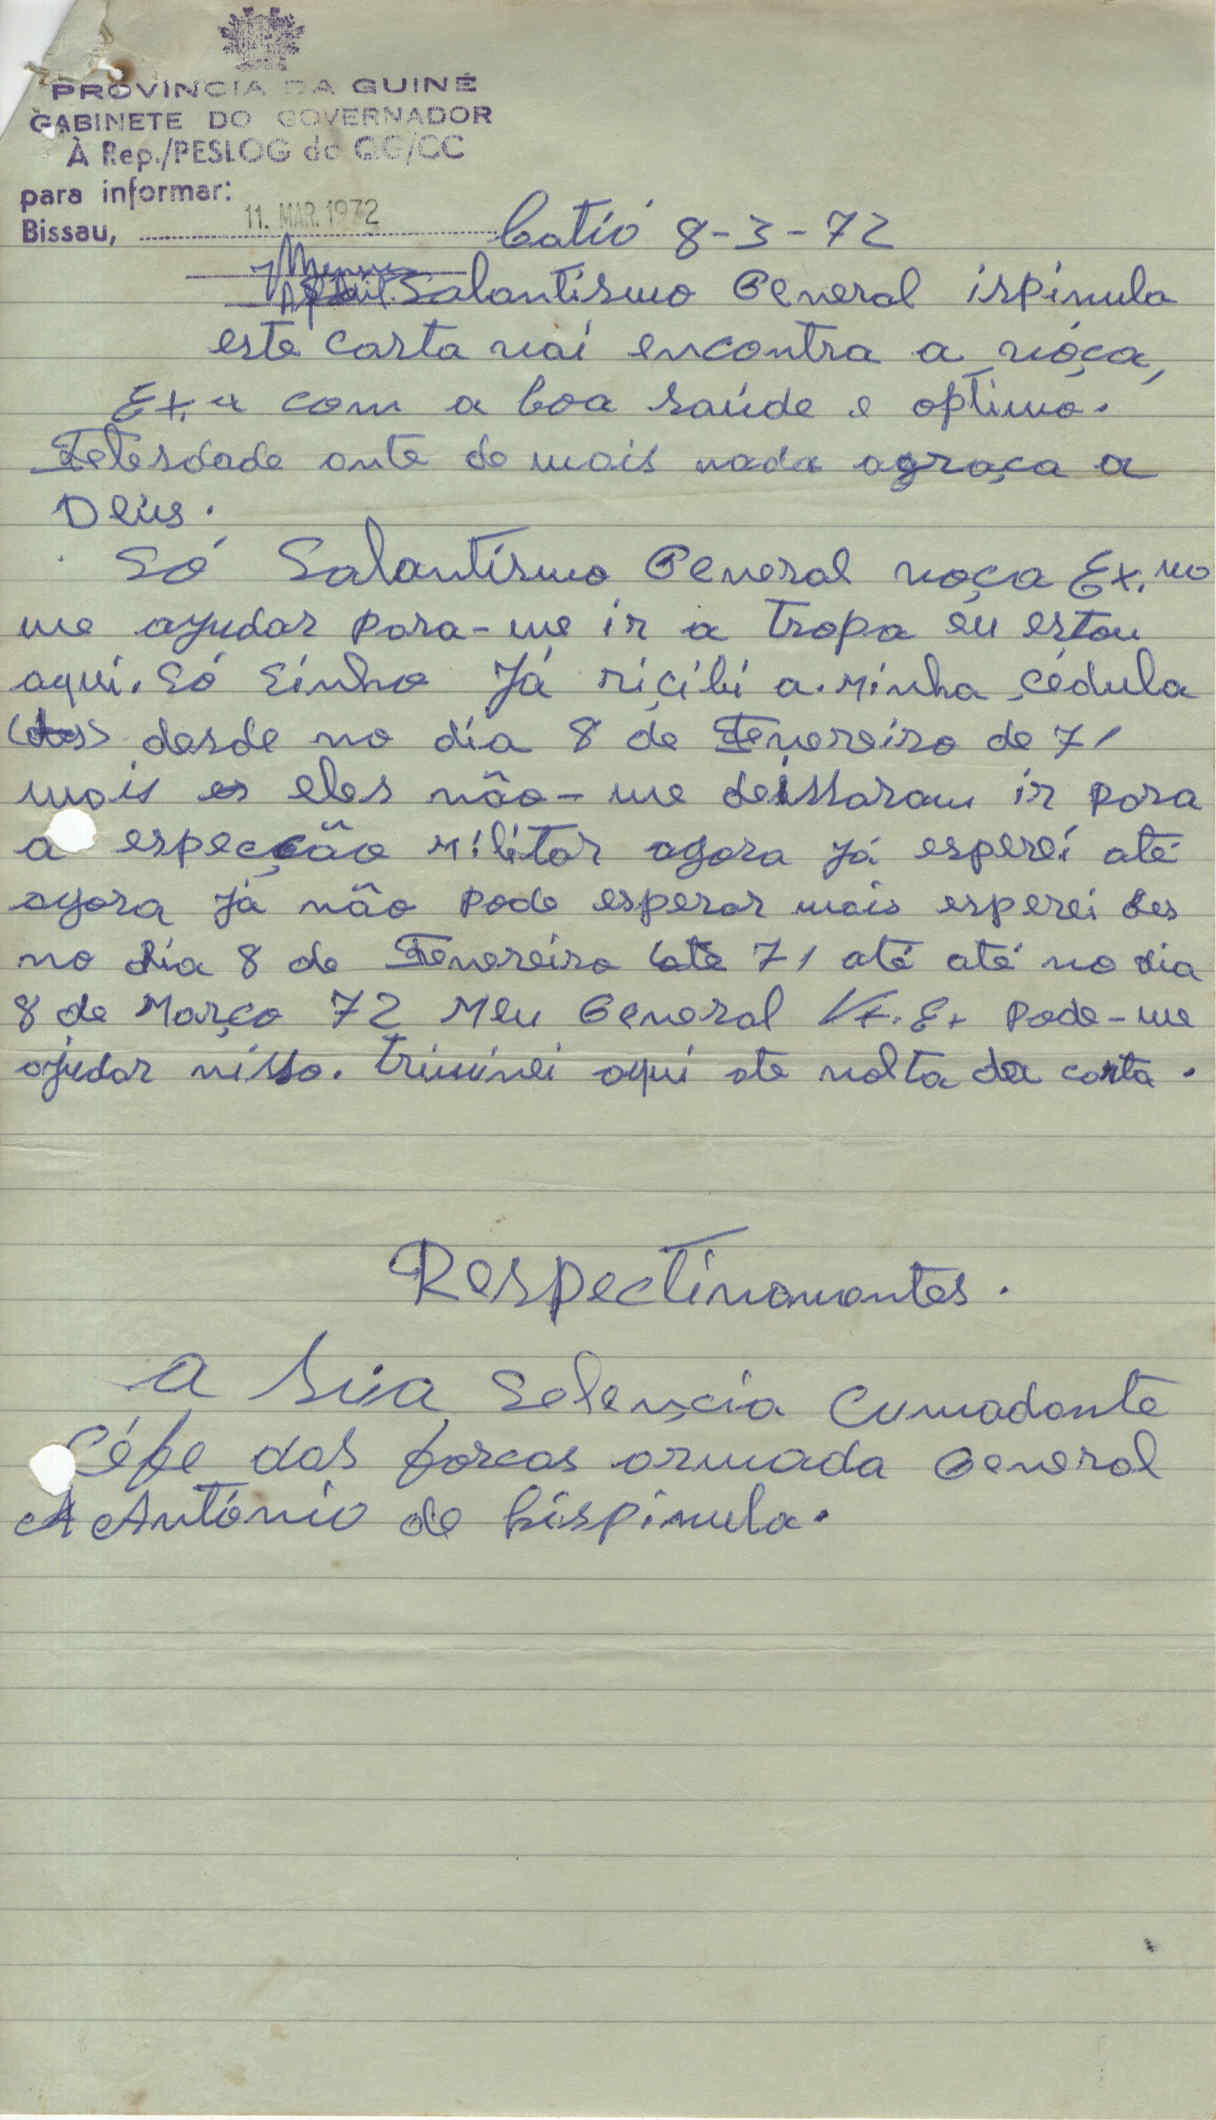 PROVÍNCIA DA GUINÉ
GABINETE DO GOVERNADOR
À Rep./PESLOG do QG/CC
para informar:
Bissau, 11. MAR. 1972
Catió 8-3-72
Salantísmo General ispinula
este carta vai encontra a vóça,
Ex.a com a boa saúde e optimo.
Felesdade ante de mais nada agraça a
Deus.
Só Salantísmo General voça Ex.mo
me ayudar para-me ir a tropa eu estou
aqui. Só Sinho Já riçibi a minha cédula
desde no dia 8 de Fevereiro de 71
mais es eles não-me deissaram ir para
a espeçcão militar agora já esperei até
agora já não pode esperar mais esperei des
no dia 8 de Fevereiro até 71 até até no dia
8 de Março 72 Meu General Vx. Ex Pode-me
ajudar nisso. triminei aqui ate volta da carta.
Respectivamentes.
A Sua Selençia Cumadante
Céfe das forças armada General
A António de Lispinula.